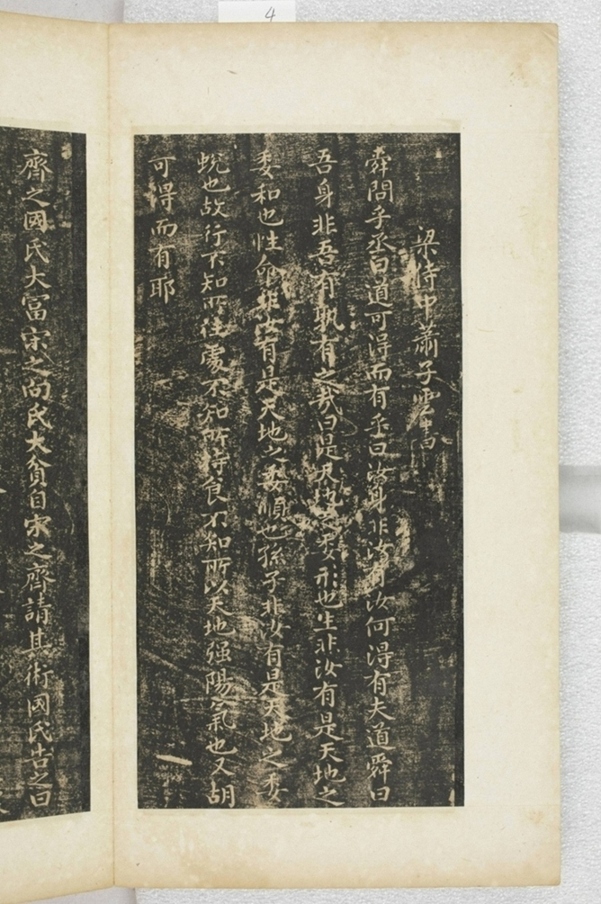 4
梁侍中蕭子雲書
舜問乎丞曰道可得而有丞曰汝身非汝有汝何得有夫道舜曰
吾身非吾有孰有之哉曰是天地之委形也生非汝有是天地之
委和也性命非汝有是天地之委順也孫子非汝有是天地之委
蛻也故行不知所往處不知所持食不知所以天地强陽氣也又胡
可得而有耶
齊之國氏大富宋之向氏大貧自宋之齊請其術國氏告之曰